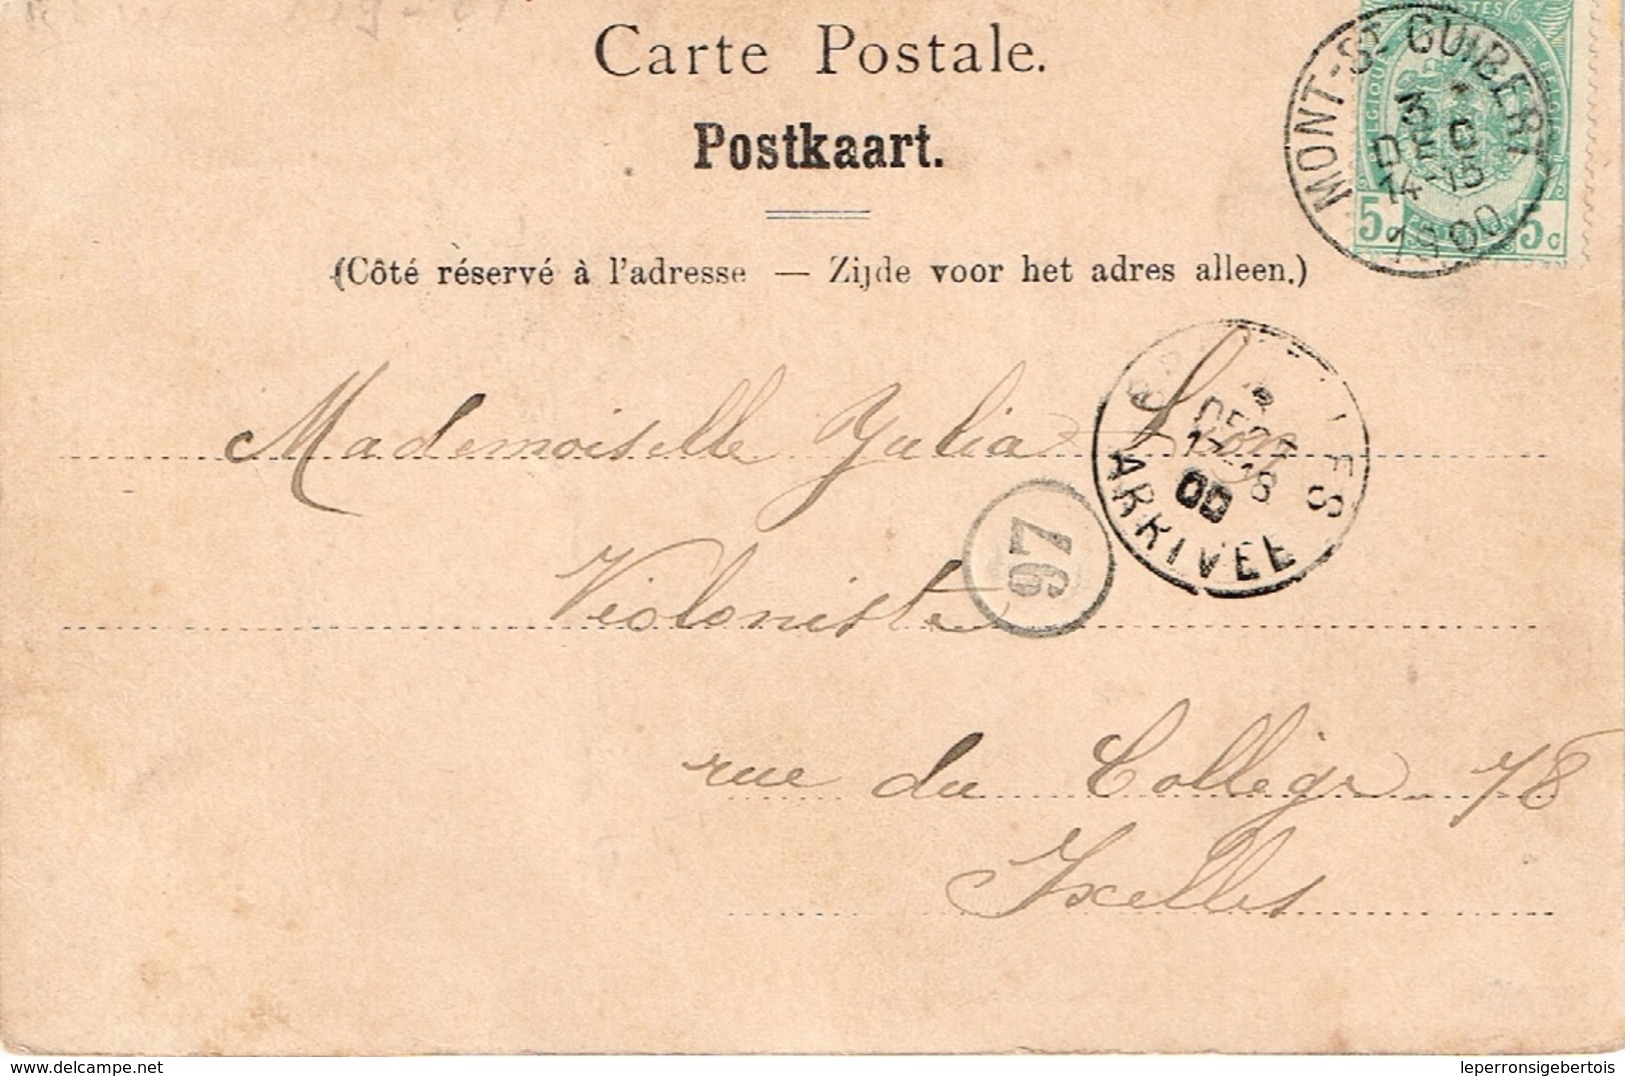 Carte Postale.
Postkaart.
(Côté réservé à l'adresse — Zijde voor het adres alleen.)
MONT-ST-GUIBERT
3 DEC
14-15
1900
5c 5c
DEC
17-18
00
ARRIVEE
97
Mademoiselle Julia
Violoniste
rue du Collège 78
Ixelles
leperronsigebertois